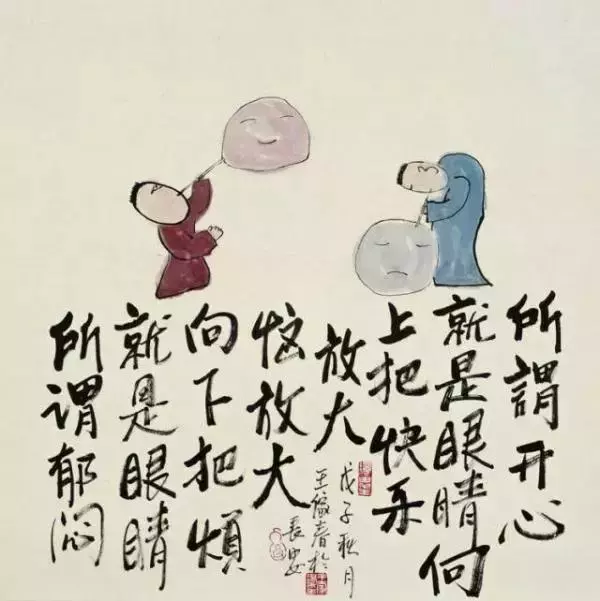 所謂开心
就是眼睛向
上把快乐
放大
所谓郁闷
就是眼睛
向下把煩
恼放大
戊子秋月
王春於
長安